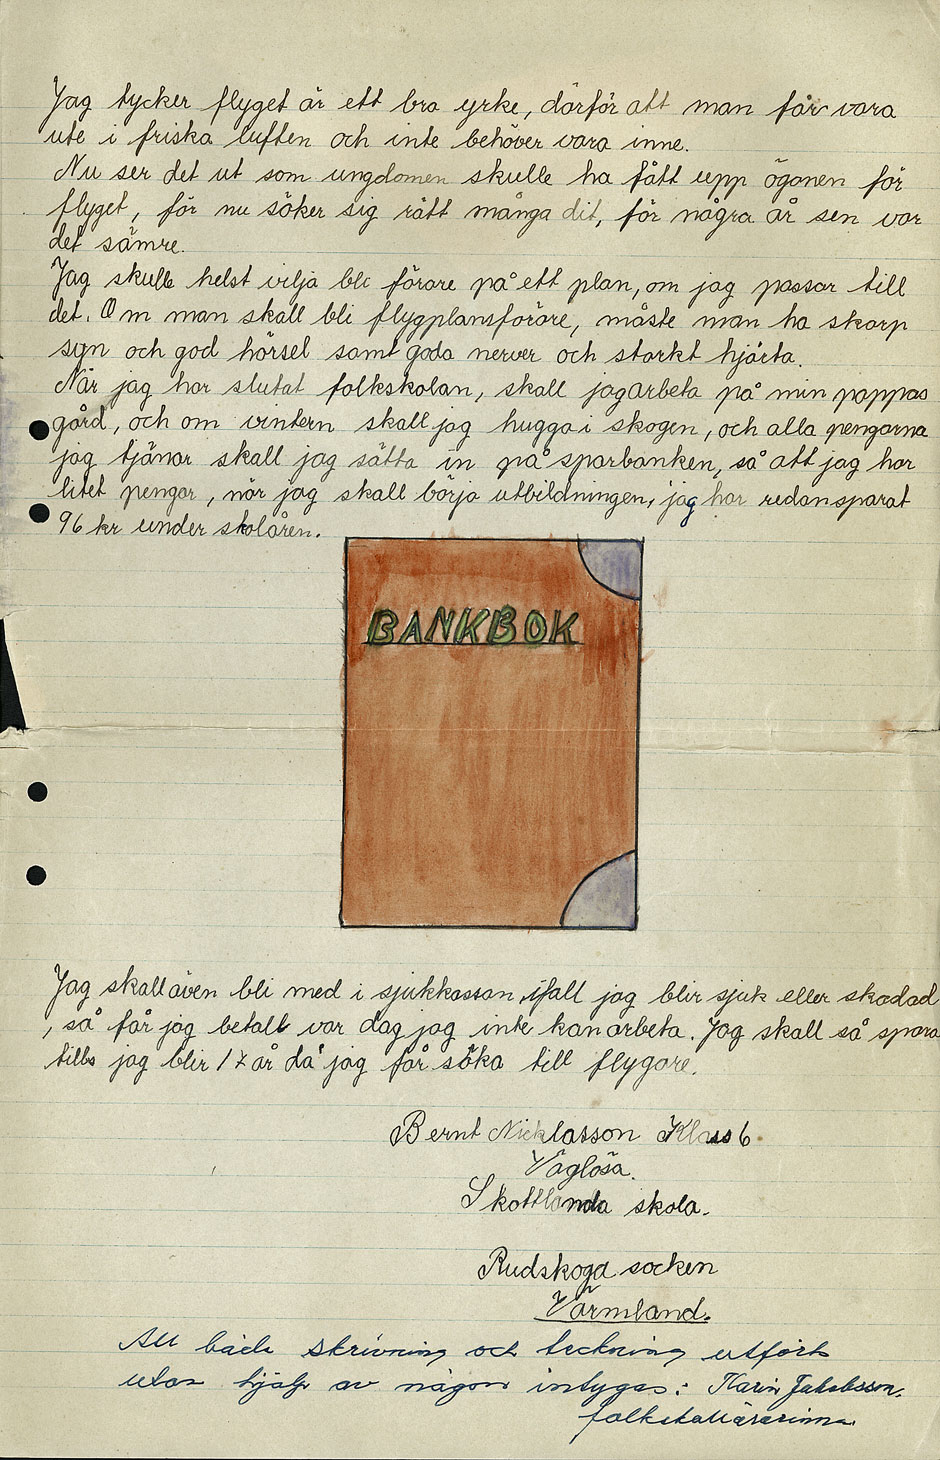 Jag tycker flyget är ett bra yrke, därför att man får vara
ute i friska luften och inte behöver vara inne.
Nu ser det ut som ungdomen skulle ha fått upp ögonen för
flyget, för nu söker sig rätt många dit, för några år sen var
det sämre.
Jag skulle helst vilja bli förare på ett plan, om jag passar till
det. Om man skall bli flygplansförare, måste man ha skarp
syn och god hörsel samt goda nerver och starkt hjärta.
När jag har slutat folkskolan, skall jag arbeta på min pappas
gård, och om vintern skall jag hugga i skogen, och alla pengarna
jag tjänar skall jag sätta in på sparbanken, så att jag har
litet pengar, när jag skall börja utbildningen, jag har redan sparat
96 kr under skolåren.
BANKBOK
Jag skall även bli med i sjukkassan, ifall jag blir sjuk eller skadad
, så får jag betalt var dag jag inte kan arbeta. Jag skall så spara
tills jag blir 17 år då jag får söka till flygare.
Bernt Nicklasson Klass 6.
Väglösa.
Skottlanda skola.
Rudskoga socken
Värmland.
Att både skrivning och teckning utförts
utan hjälp av någon intygas: Karin Jakobsson.
folkskollärarinna